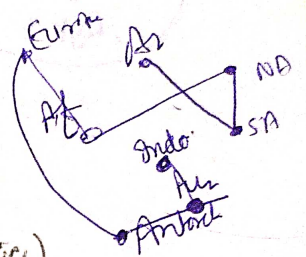 Europe
As
NA
Af
SA
Indo.
Aus
Antarct